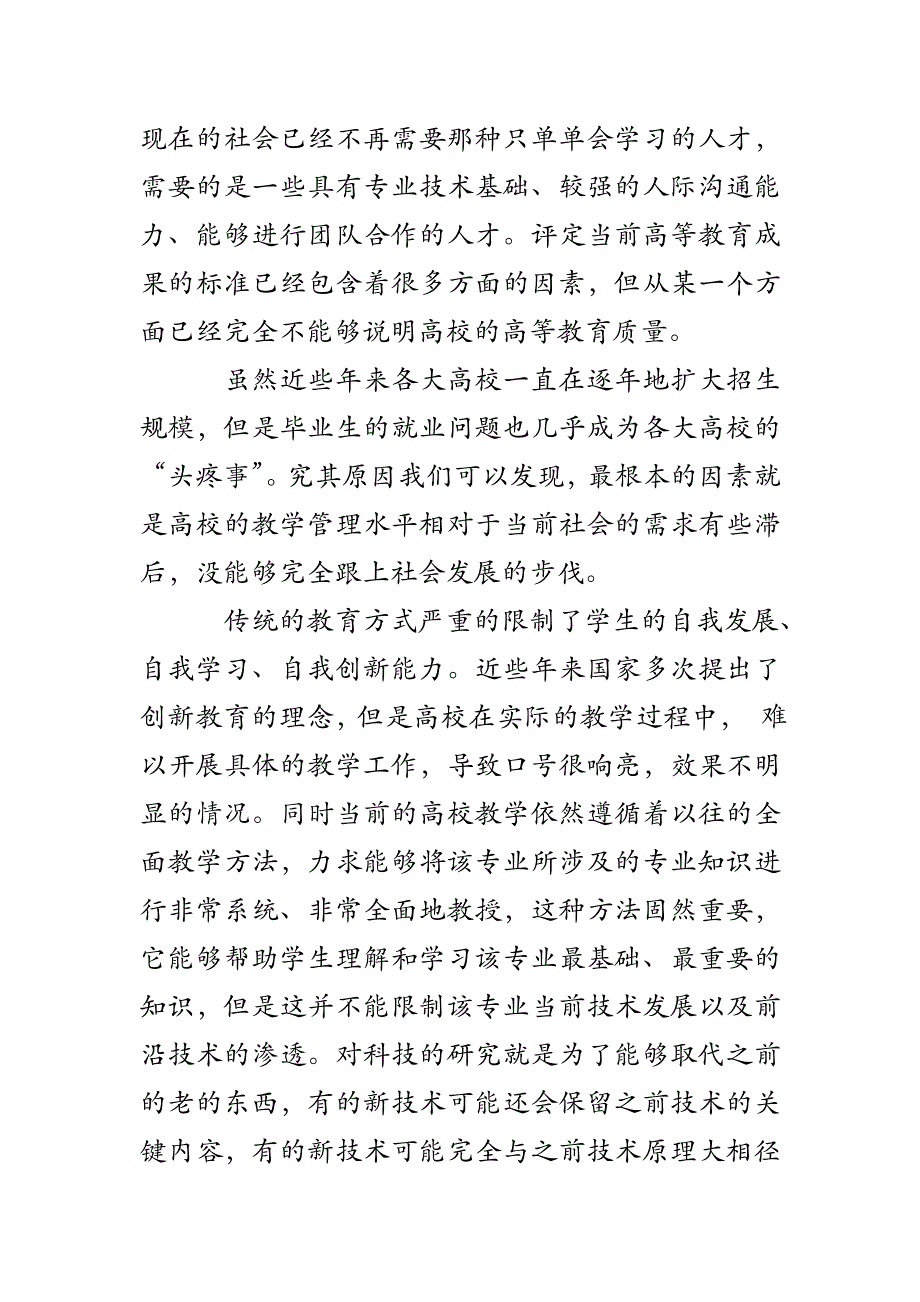 现在的社会已经不再需要那种只单单会学习的人才，
需要的是一些具有专业技术基础、较强的人际沟通能
力、能够进行团队合作的人才。评定当前高等教育成
果的标准已经包含着很多方面的因素，但从某一个方
面已经完全不能够说明高校的高等教育质量。
虽然近些年来各大高校一直在逐年地扩大招生
规模，但是毕业生的就业问题也几乎成为各大高校的
“头疼事”。究其原因我们可以发现，最根本的因素就
是高校的教学管理水平相对于当前社会的需求有些滞
后，没能够完全跟上社会发展的步伐。
传统的教育方式严重的限制了学生的自我发展、
自我学习、自我创新能力。近些年来国家多次提出了
创新教育的理念，但是高校在实际的教学过程中， 难
以开展具体的教学工作，导致口号很响亮，效果不明
显的情况。同时当前的高校教学依然遵循着以往的全
面教学方法，力求能够将该专业所涉及的专业知识进
行非常系统、非常全面地教授，这种方法固然重要，
它能够帮助学生理解和学习该专业最基础、最重要的
知识，但是这并不能限制该专业当前技术发展以及前
沿技术的渗透。对科技的研究就是为了能够取代之前
的老的东西，有的新技术可能还会保留之前技术的关
键内容，有的新技术可能完全与之前技术原理大相径